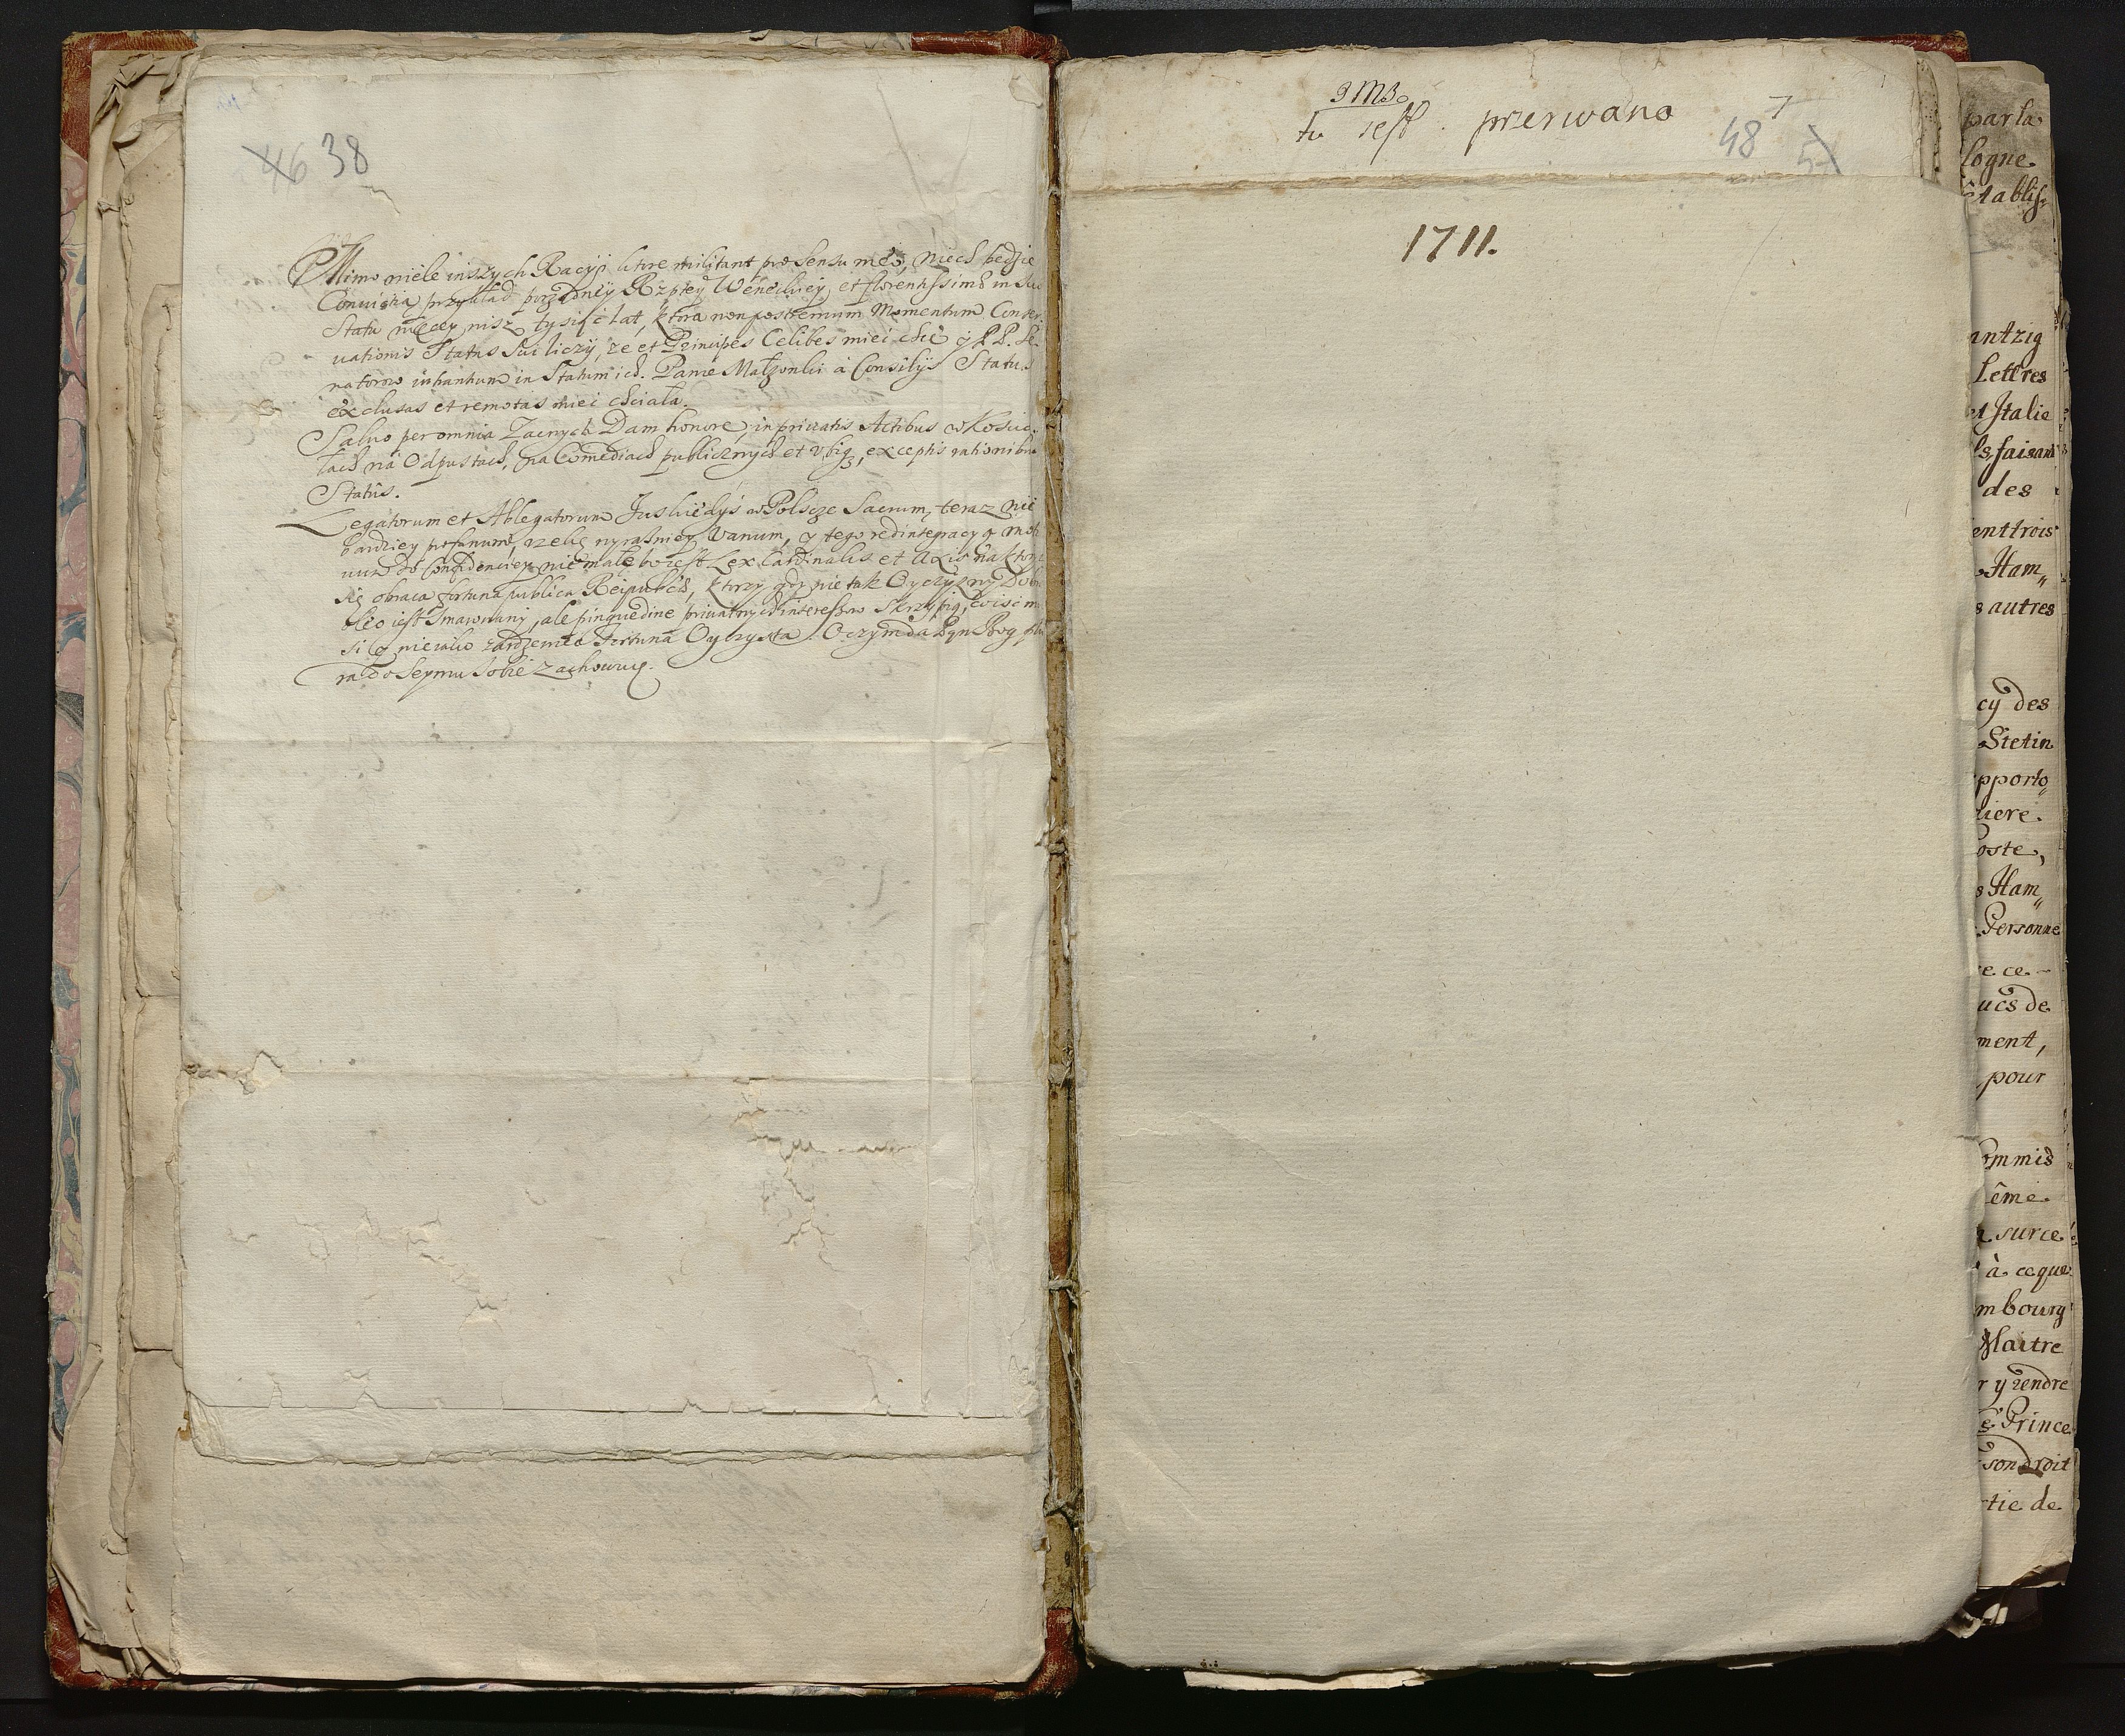 46 38
Mimo wiele inszych Racyi ktore militant pro sensu meo, niech bedzie
przykład porządney Rzptey Weneckiey, et florentissimæ in suo
Statu więcey nisz tysiąc lat, ktora non postremum Momentum Conser
uationis Status Sui liczy, ze et Principes Celibes mieć chce y PP. Se
natorow in Statum ich. Panie Małzonki à Consilijs Status
exclusas et remotas mieć chciała.
Saluo per omnia Zacnych Dam honore, in priuatis Actibus w Koscio
łach na Odpustach, na Comediach publicznych et vbiq3, exceptis rationibus
Statûs.
Legatorum et Ablegatorum Jus kiedyś w Polscze Sacrum, teraz nie
bardziey profanum, rzekę wyraźniey Vanum, y tego redintegracyą
do niemałe bo iest Lex Cardinalis et Axis na ktory
się obraca fortuna publica Reipublicæ, ktorzy gdy nie tak Oyczyzny Dobr
iest smarowany, ale pinguedine priuatnych interessow skrzypią,
si nieiako Fortuna Oyczysta. O czym da Pan Bog
ra do Seymu Sobie zachowuię.
tu iest przerwano
48 7
1711.
par la
logne
établis-
antzig
Lettres
et Italie
ls, faisant
des
ent trois
Ham„
s autres
cy des
Stetin
pporto„
liere.
oste,
s Ham„
Personne
e ce
ucs de
ment,
pour
ommis
ême
sur ce
à ce que
mbourg
Maitre
r y rendre
Prince
son droit
tie de